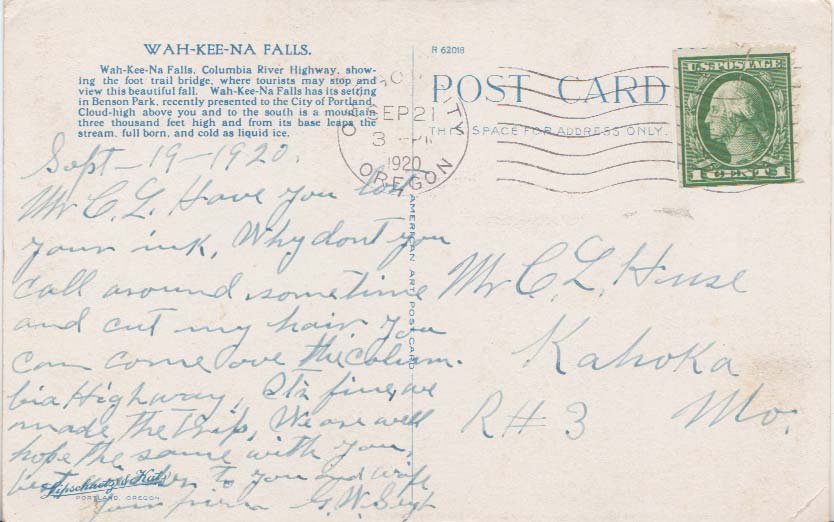 WAH-KEE-NA FALLS.
Wah-Kee-Na Falls, Columbia River Highway, show-
ing the foot trail bridge, where tourists may stop and
view this beautiful fall. Wah-Kee-Na Falls has its setting
in Benson Park, recently presented to the City of Portland.
Cloud-high above you and to the south is a mountain
three thousand feet high and from its base leaps the
stream, full born, and cold as liquid ice.
R 62018
POST CARD
THIS SPACE FOR ADDRESS ONLY.
SEP 21
3
1920
OREGON
U.S. POSTAGE
1 CENTS 1
Sept - 19 - 1920.
Mr C. L. Have you lost
your ink, Why dont you
call around sometime
and cut my hair you
can come ove the Colum-
bia Highway, Its fine, we
made the trip, We are well
hope the same with you,
best to you and wife
your G. W.
AMERICAN ART POST CARD
Mr C. L. Huse
Kahoka
R # 3 Mo.
Lipschuetz & Katz
PORTLAND, OREGON